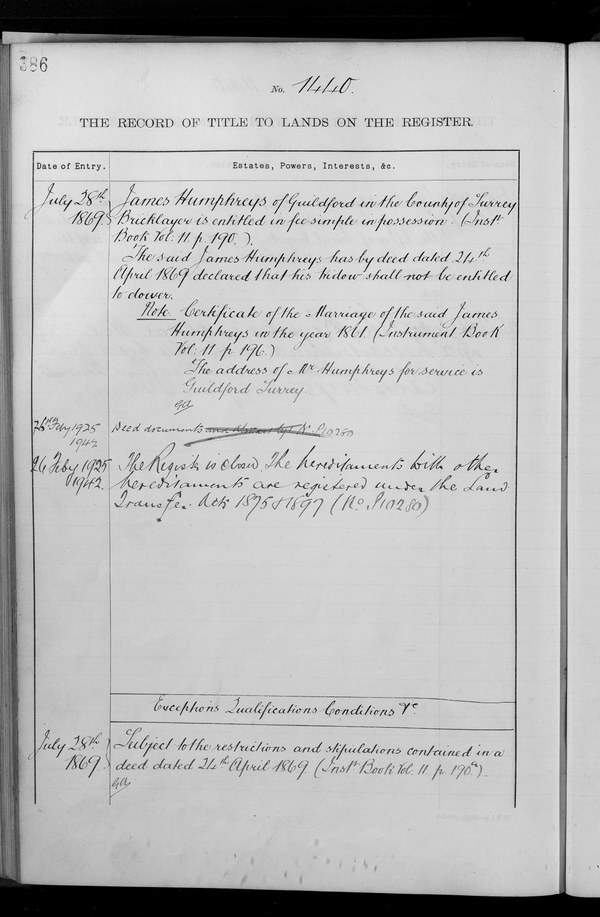 386
No. 1440.
THE RECORD OF TITLE TO LANDS ON THE REGISTER.
Date of Entry.
Estates, Powers, Interests, &c.
July 28th 1869
James Humphreys of Guildford in the County of Surrey
Bricklayer is entitled in fee simple in possession. (Inst
Book Vol. 11. p. 190.).
The said James Humphreys has by deed dated 24th
April 1869 declared that his widow shall not be entitled
to dower.
Note. Certificate of the Marriage of the said James
Humphreys in the year 1861. (Instrument Book
Vol. 11. p 196.)
The address of Mr Humphreys for service is
Guildford Surrey.
26th Feby 1925
1942
Deed documents No. P10280
26 Feby 1925
1942.
The Register is closed. The hereditaments with other
hereditaments are registered under the Land
Transfer Acts 1875 & 1897 (No. P10280)
Exceptions Qualifications Conditions &c
July 28th
1869.
Subject to the restrictions and stipulations contained in a
deed dated 24th April 1869. (Inst Book Vol. 11. p. 190a).